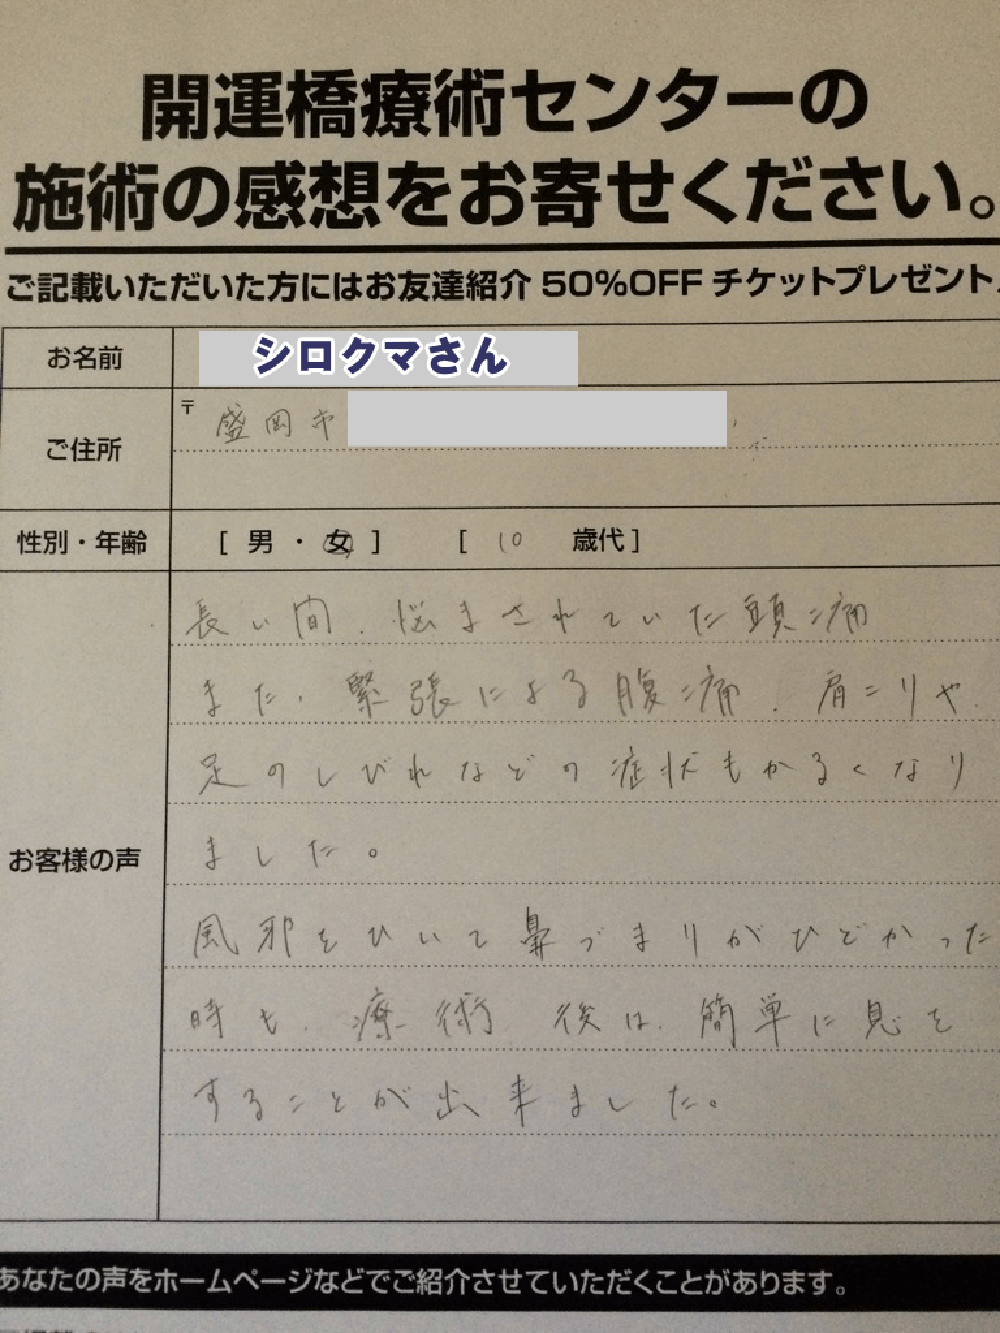 開運橋療術センターの
施術の感想をお寄せください。
ご記載いただいた方にはお友達紹介 50%OFF チケットプレゼント
お名前 シロクマさん
ご住所 〒 盛岡市
性別・年齢 [ 男 ・ 女 ] [ 10 歳代 ]
お客様の声
長い間、悩まされていた頭痛
また、緊張による腹痛、肩こりや、
足のしびれなどの症状もかるくなり
ました。
風邪をひいて鼻づまりがひどかった
時も、療術後は、簡単に息を
することが出来ました。
あなたの声をホームページなどでご紹介させていただくことがあります。